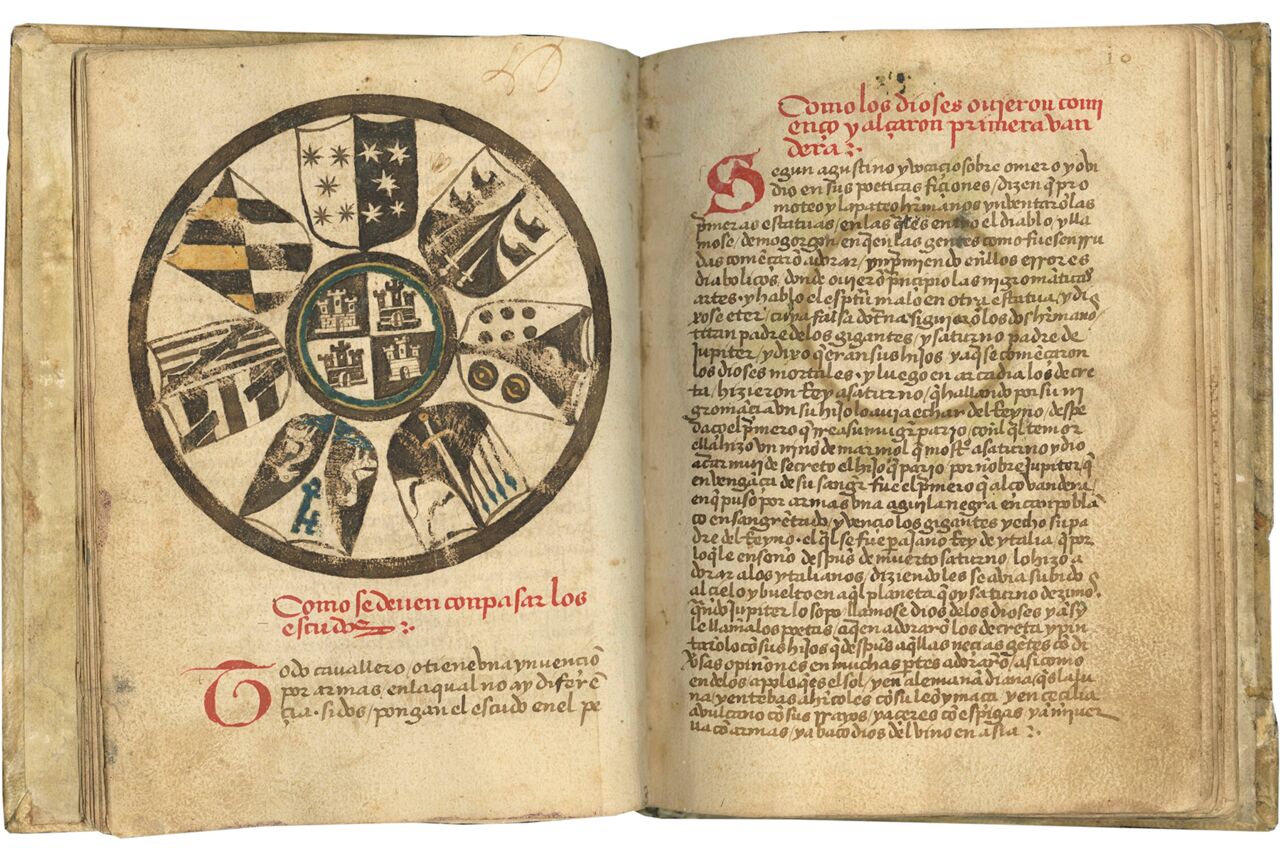 Como se deuen conpasar los
escudos
Todo cavallero, o tiene vna ynuencio
por armas, en la qual no ay diferē
cia. si dos / pongan el escudo en el pe
10
Como los dioses ouieron comi
enço y alçaron primera van
dera
Segun agustino y vocacio sobre omero y obi
dio en sus poeticas ficiones / dizen q̄ pro
moteo y lapateo hr̄manos ynbentarō las
p̄meras estatuas / en las q̄les entro el diablo, y lla
mose / demogorgon, en quien las gentes como fuesen ru
das comēçarō adorar / ynprimiendo en llos errores
diabolicos, donde ouierō prīcipio las nigromāticas
artes. y hablo el esp̄u malo en otra estatua, y di
xose eter / cuya falsa dotr̄na siguierō los dos hr̄manos
titan padre de los gigantes / y saturno padre de
Jupiter / y dixo q̄ eran sus hijos y aq̄ se comēçaron
los dioses mortales. y luego en arcadia los de cre
ta / hizieron Rey a saturno / q̄ hallando por su ni
gromācia vn su hijo lo auia echar del Reyno / despe
daço el p̄mero q̄ rrea su muger pario / con l q̄l temor
ella hizo vn niño de marmol q̄ mostro a saturno y dio
a criar de secreto el hijo q̄ pario por nobre Jupiter / q̄
en vengāça de su sangr̄ fue el p̄mero q̄ alço vandera /
en q̄ puso por armas vna aguila negra en canpo blā
co ensangrētado / y vencio los gigantes y echo su pa
dre del Reyno. el q̄l se fue a Jano Rey de ytalia q̄ por
lo q̄ le enseño despues de muerto saturno lo hizo a
dorar a los ytalianos, diziendoles se abia subido
al cielo y buelto en aq̄l planeta q̄ oy saturno dezimos.
q̄ndo Jupiter lo sopo / llamose dios de los dioses y ansy
le llamā los poetas / a quien adorarō los de creta y pin
tarōlo cō sus hijos q̄ despues aq̄llas necias gētes cō di
versas opiniones en muchas p̄tes adorarō / asi como
en delos apolo q̄ es el sol / y en alemaña diana q̄ es la lu
na / y en tebas a hrcoles cō su leō y maça y en cecilia
a vulcano cō sus rrayos / y a ceres cō espigas / y a miner
ua cō armas / y a baco dios del vino en asia